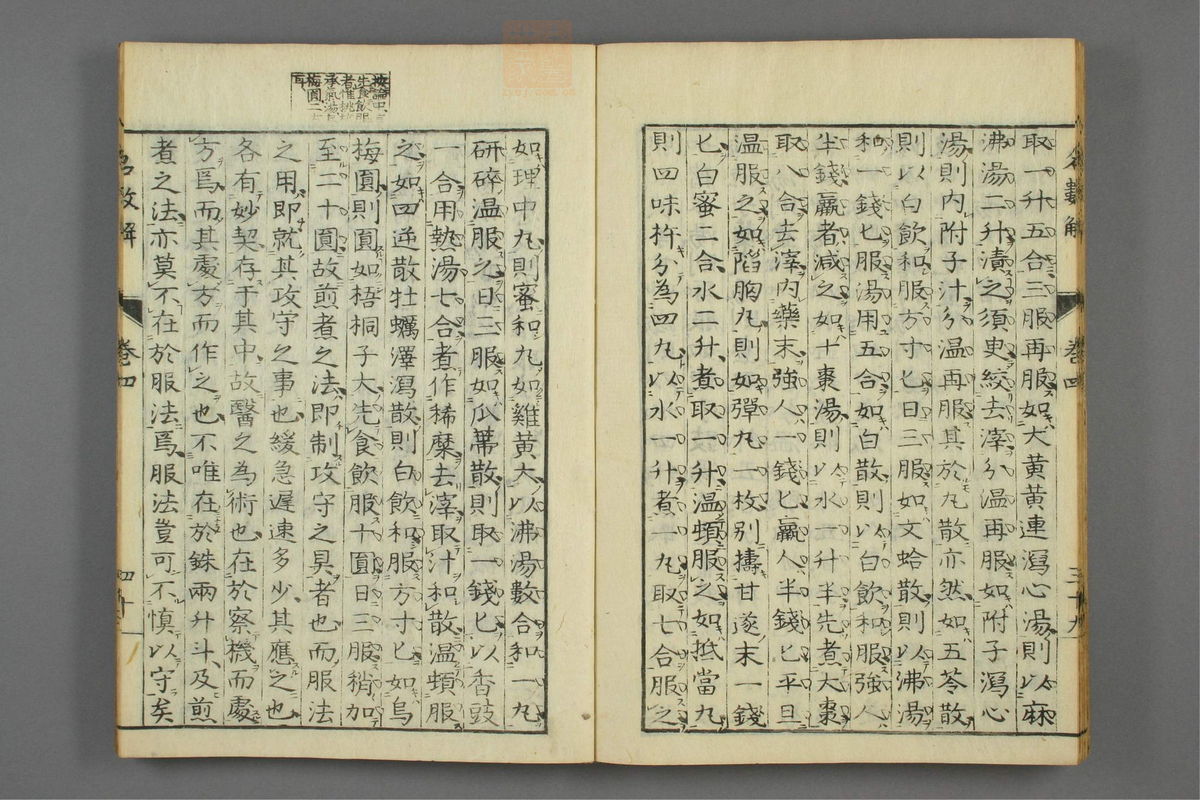 取一升五合三服再服如大黃黃連瀉心湯則以麻
沸湯二升漬之須臾絞去滓分溫再服如附子瀉心
湯則內附子汁分溫再服其於丸散亦然如五苓散
則以白飲和服方寸匕日三服如文蛤散則以沸湯
和一錢匕服湯用五合如白散則以白飲和服強人
半錢羸者減之如十棗湯則以水一升半先煮大棗
取八合去滓內藥末強人一錢匕羸人半錢匕平旦
溫服之如陷胸丸則如彈丸一枚別擣甘遂末一錢
匕白蜜二合水二升煮取一升溫頓服之如抵當丸
則四味杵分為四丸以水一升煮一丸取七合服之
名數解
卷四
三十九
如理中丸則蜜和丸如雞黃大以沸湯數合和一丸
研碎溫服之日三服如瓜蔕散則取一錢匕以香豉
一合用熱湯七合煮作稀糜去滓取汁和散溫頓服
之如四逆散牡蠣澤瀉散則白飲和服方寸匕如烏
梅圓則圓如梧桐子大先食飲服十圓日三服稍加
至二十圓故煎煮之法即制攻守之具者也而服法
之用即就其攻守之事也緩急遲速多少其應之也
各有妙契存于其中故醫之為術也在於察機而處
方焉而其處方而作之也不唯在於銖兩升斗及煎
煮之法亦莫不在於服法焉服法豈可不慎以守矣
名數解
卷四
四十